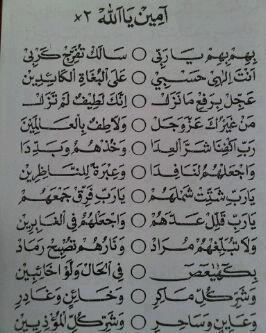 آمِيْنَ يَا اَللّٰه ×٢
بِهِمْ بِهِمْ يَا رَبِّي ○ سَالَكْ تُفَرِّجْ كَرْبِي
اَنْتَ اِلٰهِيْ حَسْبِي ○ عَلَى الْبُغَاةِ الْكَائِدِيْن
عَجِّلْ بِرَفْعِ مَا نَزَلْ ○ اِنَّكَ لَطِيْفٌ لَمْ تَزَلْ
مَنْ غَيْرُكَ عَزَّ وَجَلْ ○ وَلَاطِفٌ بِالْعَالَمِيْن
رَبِّ اكْفِنَا شَرَّ الْعِدَا ○ وَخُذْهُمُ وَبَدِّدَا
وَاجْعَلْهُمُ لَنَا فِدَا ○ وَعِبْرَةً لِلنَّاظِرِيْن
يَا رَبِّ شَتِّتْ شَمْلَهُمْ ○ يَا رَبِّ فَرِّقْ جَمْعَهُمْ
يَا رَبِّ قَلِّلْ عَدَّهُمْ ○ وَاجْعَلْهُمُ فِي الْغَابِرِيْن
وَلَا تُبَلِّغْهُمْ مُرَادْ ○ وَنَارُهُمْ تُصْبِحْ رَمَادْ
بِكٓهٰيٰعٓصٓ ○ فِي الْحَالِ وَلَّوْا خَائِبِيْن
وَشَرَّ كُلِّ مَاكِرِ ○ وَخَائِنٍ وَغَادِرِ
وَعَايِنٍ وَسَاحِرِ ○ وَشَرَّ كُلِّ الْمُؤْذِيِيْن